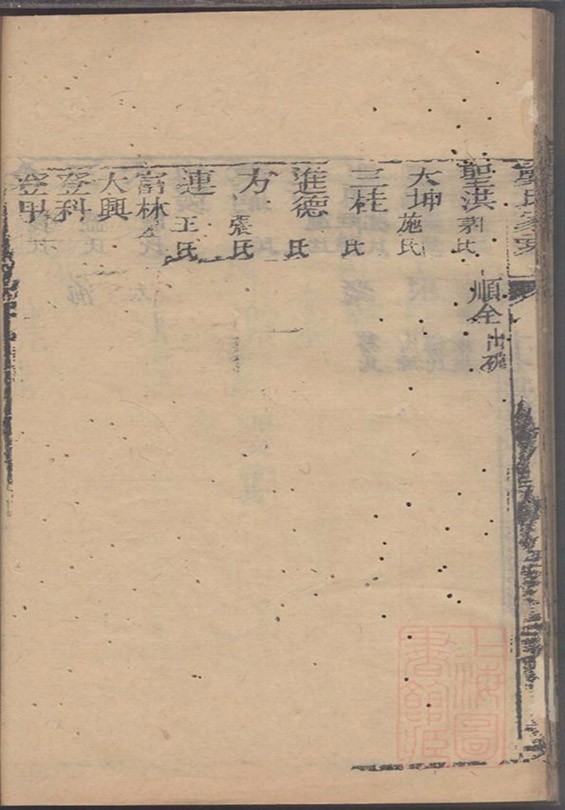 聖洪 氏
順全 出
大坤 施氏
三桂 氏
進德 氏
方 張氏
連 王氏
富林
大興
登科
登甲
上海圖書館